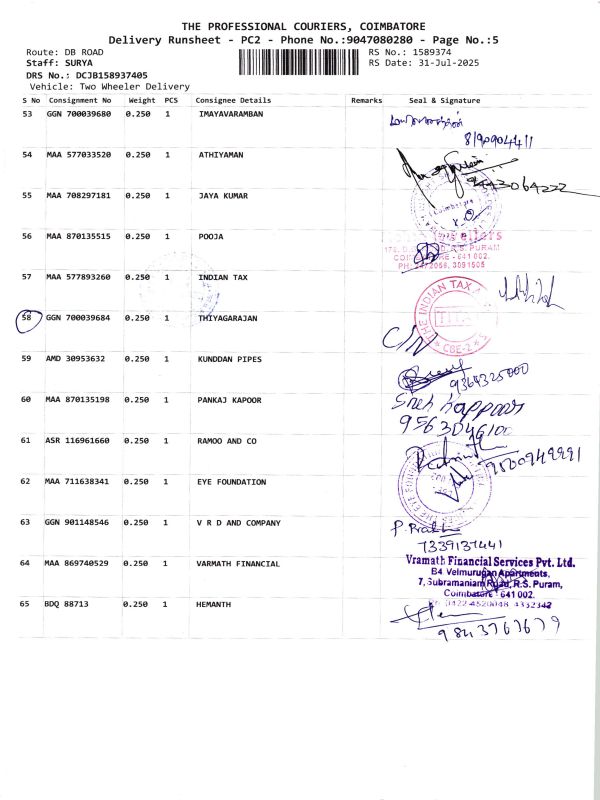 THE PROFESSIONAL COURIERS, COIMBATORE
Delivery Runsheet - PC2 - Phone No.:9047080280 - Page No.:5
Route: DB ROAD
RS No.: 1589374
Staff: SURYA
RS Date: 31-Jul-2025
DRS No.: DCJB158937405
Vehicle: Two Wheeler Delivery
S No Consignment No Weight PCS Consignee Details Remarks Seal & Signature
53 GGN 700039680 0.250 1 IMAYAVARAMBAN
54 MAA 577033520 0.250 1 ATHIYAMAN
55 MAA 708297181 0.250 1 JAYA KUMAR
Coimbatore
56 MAA 870135515 0.250 1 POOJA
R.S. PURAM
- 641 002.
57 MAA 577893260 0.250 1 INDIAN TAX
THE INDIAN TAX
CBE-2
58 GGN 700039684 0.250 1 THIYAGARAJAN
C/N
59 AMD 30953632 0.250 1 KUNDDAN PIPES
9364325000
60 MAA 870135198 0.250 1 PANKAJ KAPOOR
9563046100
61 ASR 116961660 0.250 1 RAMOO AND CO
9500949991
62 MAA 711638341 0.250 1 EYE FOUNDATION
63 GGN 901148546 0.250 1 V R D AND COMPANY
7339137441
64 MAA 869740529 0.250 1 VARMATH FINANCIAL
Vramath Financial Services Pvt. Ltd.
B4 Velmurugan Apartments,
7, Subramaniam Road, R.S. Puram,
Coimbatore - 641 002.
Ph: 0422-4520048, 4332342
65 BDQ 88713 0.250 1 HEMANTH
9843767679